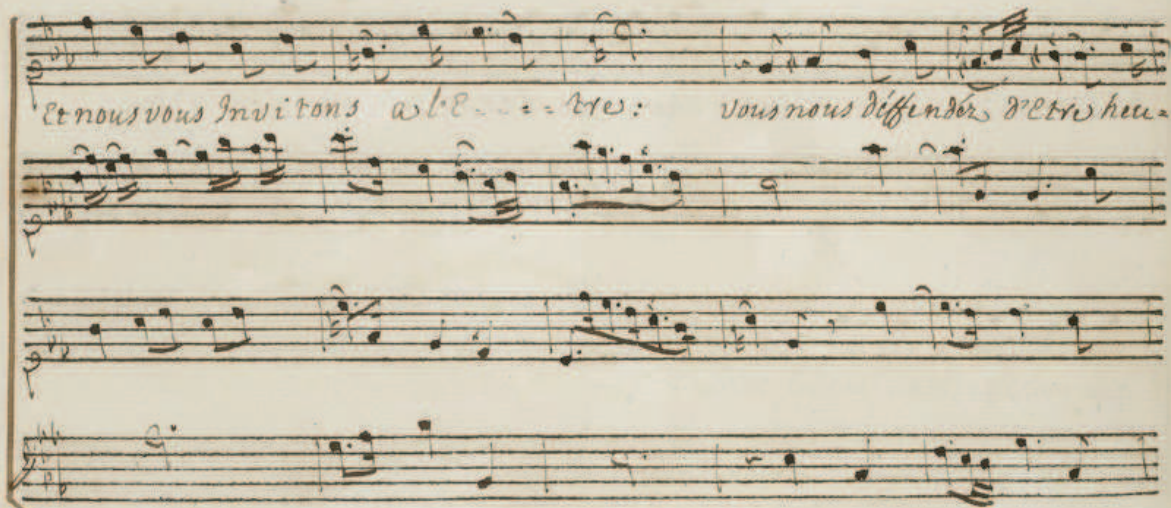 Et nous vous Invitons a l'E - - - - tre: vous nous déffendéz d'Etre heu=